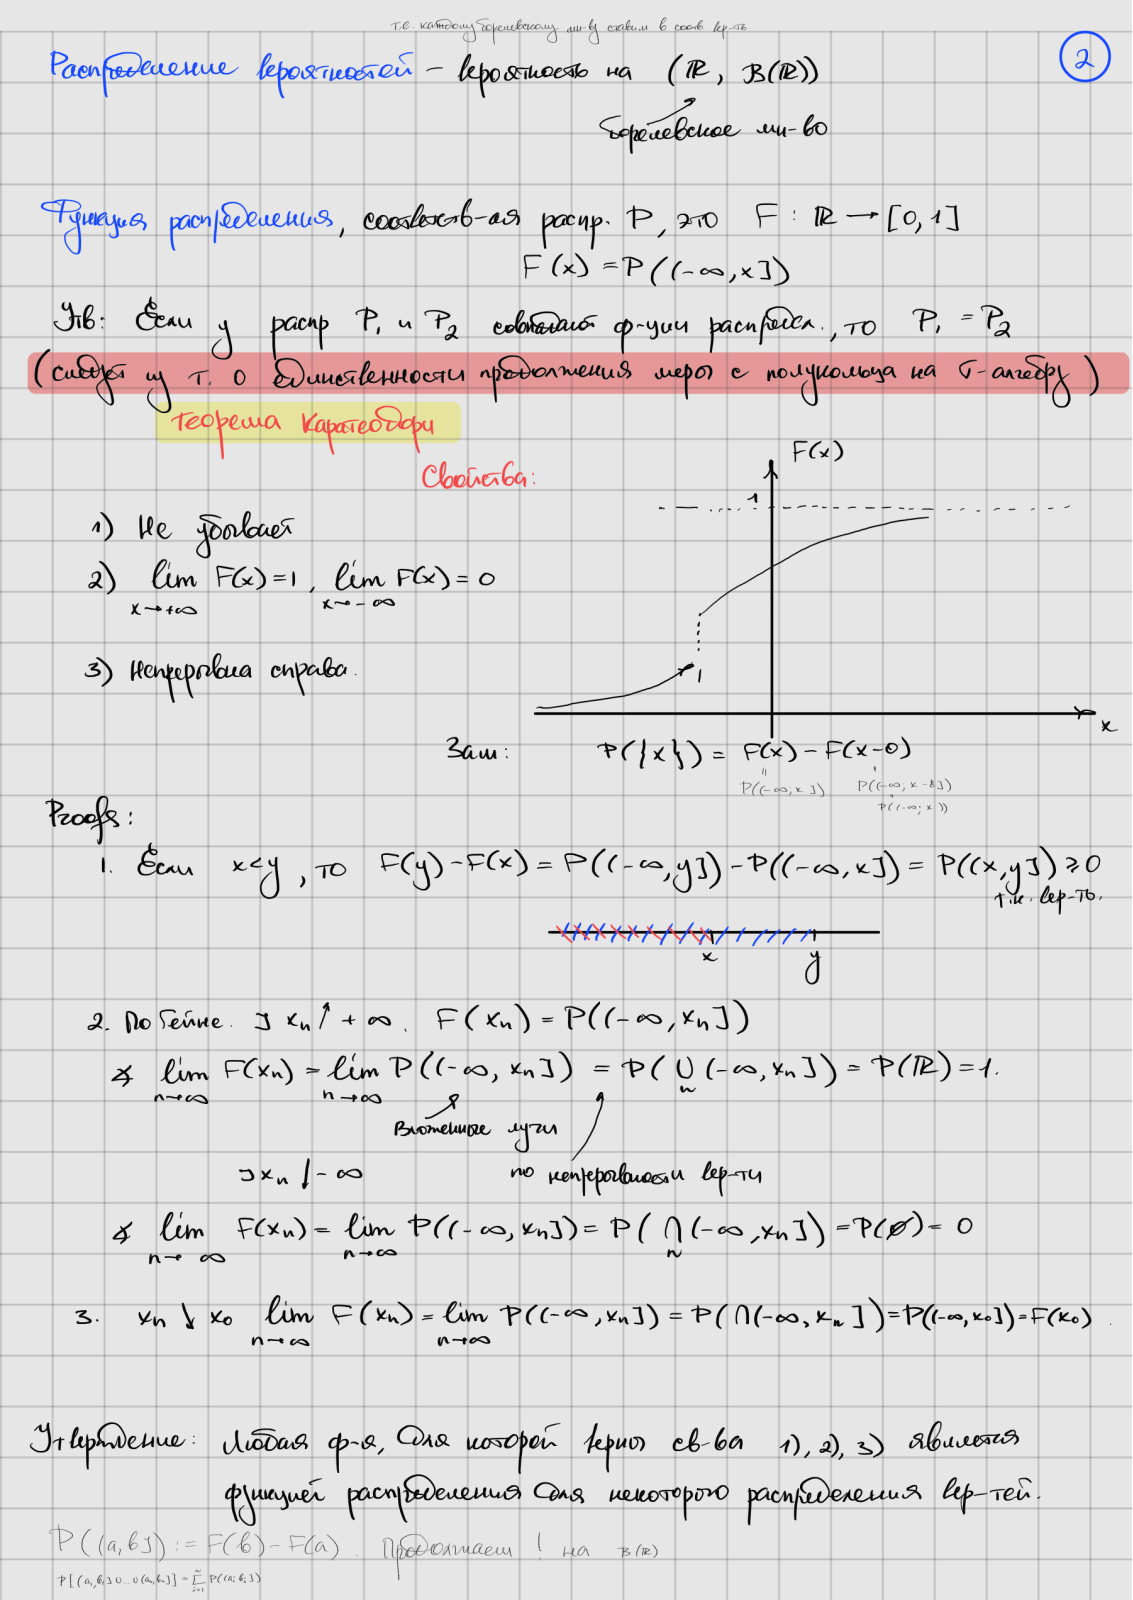 т.е. каждому борелевскому мн-ву ставим в соотв. вер-ть
2
Распределение вероятностей – вероятность на (ℝ, B(ℝ))
борелевское мн-во
Функция распределения, соответств-ая распр. P, это F : ℝ → [0,1]
F(x) = P((-∞,x])
Утв: Если у распр P₁ и P₂ совпадают ф-ции распредел., то P₁ = P₂
(следует из т. о единственности продолжения меры с полукольца на σ-алгебру)
теорема Каратеодори
Свойства:
F(x)
1
1) Не убывает
2) lim F(x)=1, lim F(x)=0
x→+∞ x→-∞
3) Непрерывна справа.
x
Зам: P({x}) = F(x) – F(x-0)
P((-∞;x]) P((-∞;x-ε])
P((-∞;x))
Proofs:
1. Если x<y, то F(y)-F(x) = P((-∞,y]) - P((-∞,x]) = P((x,y]) ≥ 0
т.к. вер-ть.
x y
2. По Гейне. ∃ xₙ↑+∞. F(xₙ) = P((-∞,xₙ])
∡ lim F(xₙ) = lim P((-∞,xₙ]) = P(∪(-∞,xₙ]) = P(ℝ) = 1.
n→∞ n→∞ n
Вложенные лучи
∃ xₙ↓-∞ по непрерывности вер-ти
∡ lim F(xₙ) = lim P((-∞,xₙ]) = P(∩(-∞,xₙ]) = P(∅) = 0
n→∞ n→∞ n
3. xₙ↓x₀ lim F(xₙ) = lim P((-∞,xₙ]) = P(∩(-∞,xₙ]) = P((-∞,x₀]) = F(x₀).
n→∞ n→∞
Утверждение: Любая ф-я, для которой верны св-ва 1), 2), 3) является
функцией распределения для некоторого распределения вер-тей.
P((a,b]) := F(b) – F(a). Продолжаем ! на B(ℝ)